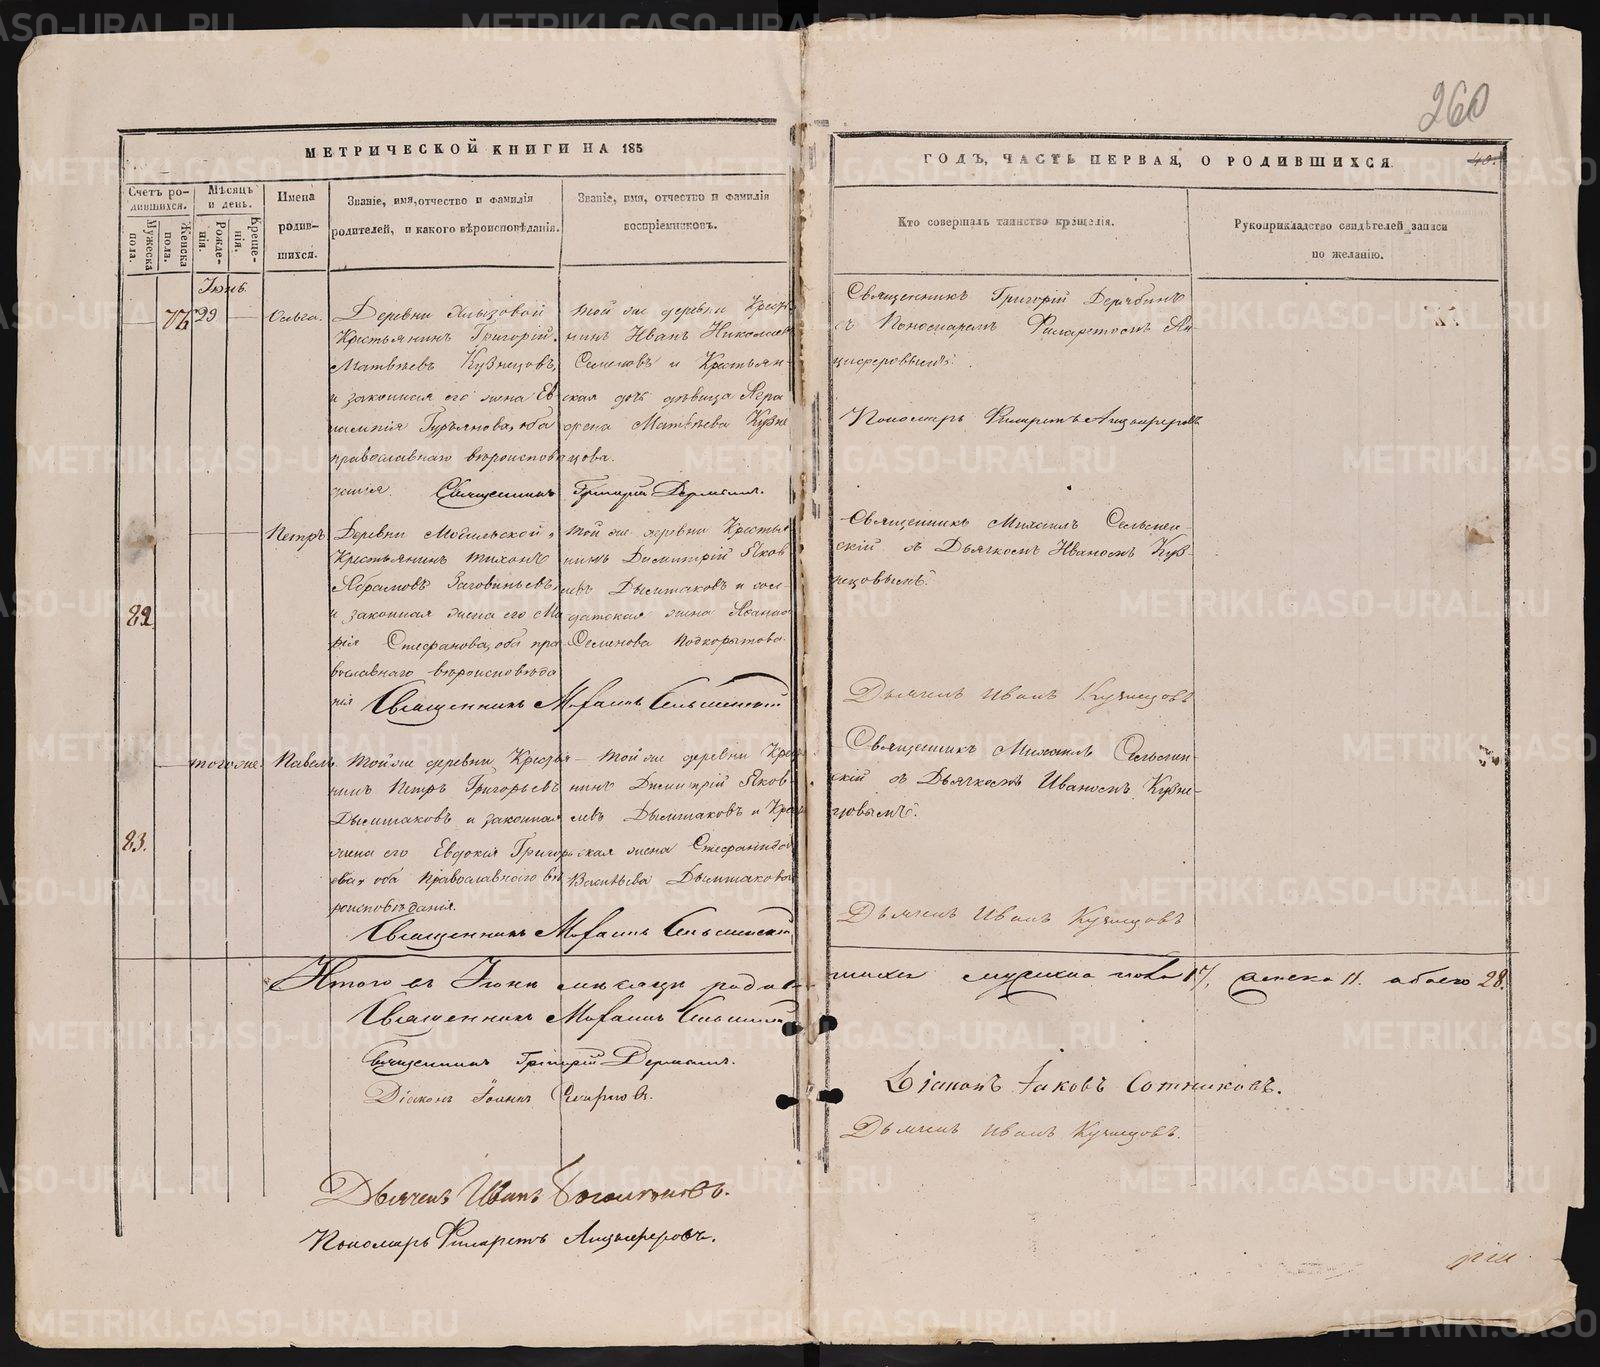 260
МЕТРИЧЕСКОЙ КНИГИ НА 185
ГОДЪ, ЧАСТЬ ПЕРВАЯ, О РОДИВШИХСЯ
40.
Счетъ ро-
дившихся.
Мужеска
пола.
Женска
пола.
Мѣсяцъ
и день.
Рожде-
нія.
Креще-
нія.
Имена
родив-
шихся.
Званіе, имя, отчество и фамилія
родителей, и какого вѣроисповѣданія.
Званіе, имя, отчество и фамилія
воспріемниковъ.
Кто совершалъ таинство крещенія.
Рукоприкладство свидѣтелей записи
по желанію.
Іюнь
29
Ольга.
Деревни
Крестьянинъ Григорій
Матвѣевъ Кузнецовъ,
и законная его жена Ев
Гурьянова, оба
православнаго вѣроиспов
данія. Священникъ
Той же деревни Кресть
нинъ Иванъ Николаев
и Крестьян-
ская дочь дѣвица Агра
фена Матвѣева Кузне
цова.
Григорій
Священникъ Григорій Дерябинъ
съ Пономаремъ Филаретомъ Ан
циферовымъ.
Пономарь Филаретъ Анциферовъ
82
Петръ
Деревни
Крестьянинъ Тихонъ
Абрамовъ
и законная жена его Ма
рія Стефанова, оба пра
вославнаго вѣроисповѣда
нія Священникъ Михаилъ
Той же деревни Крестья
нинъ Димитрій Яков
левъ Дымшаковъ и сол-
датская жена
Семенова Подкорытова
Священникъ Михаилъ
скій съ Дьячкомъ Иваномъ Куз-
нецовымъ.
Дьячекъ Иванъ Кузнецовъ
83.
того же.
Павелъ.
Той же деревни Крестья
нинъ Петръ Григорьевъ
Дымшаковъ и законная
жена его Евдокія Григорь
ева, оба Православнаго вѣ
роисповѣданія.
Священникъ Михаилъ
Той же деревни Крес
нинъ Димитрій Яков
левъ Дымшаковъ и Крес
ская жена Стефанида
Васильева Дымшакова
Священникъ Михаилъ
скій съ Дьячкомъ Иваномъ Кузне-
цовымъ.
Дьячекъ Иванъ Кузнецовъ
Итого въ Іюнѣ мѣсяцѣ родив
шихся мужеска пола 17, женска 11. обоего 28.
Священникъ Михаилъ
Священникъ Григорій
Діаконъ Іоаннъ
Діаконъ Іаковъ Сотниковъ.
Дьячекъ Иванъ Кузнецовъ.
Дьячекъ Иванъ
Пономарь Филаретъ Анциферовъ.
METRIKI.GASO-URAL.RU